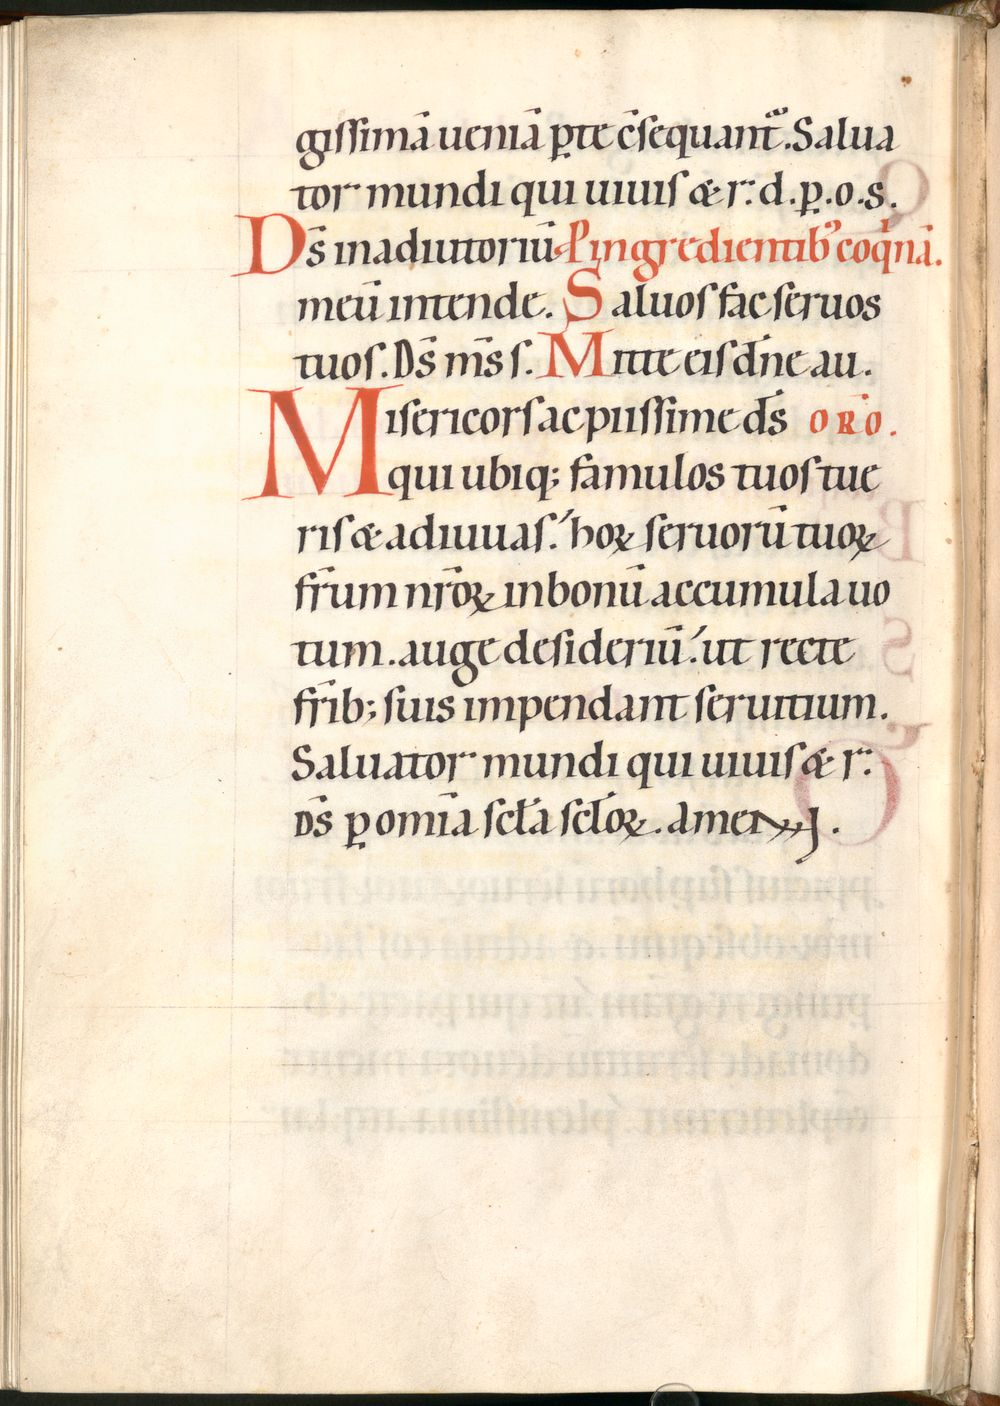 gissimā ueniā ꝑte c̄sequant᷑. Salua
tor mundi qui uiuis & r. d. ꝑ. o. s.
Ds̄ in adiutoriū P ingredientib' coqͥnā.
meū intende. Saluos fac seruos
tuos. Ds̄ ms̄ s. Mitte eis dn̄e au.
Misericors ac piissime ds̄ ORO.
qui ubiq; famulos tuos tue
ris & adiuuas. hoꝝ seruorū tuoꝝ
fr̄um nr̄oꝝ in bonū accumula uo
tum. auge desideriū. ut recte
fr̄ib; suis impendant seruitium.
Saluator mundi qui uiuis & r.
Ds̄ ꝑ omīa scl̄a scl̄oꝝ. amen.